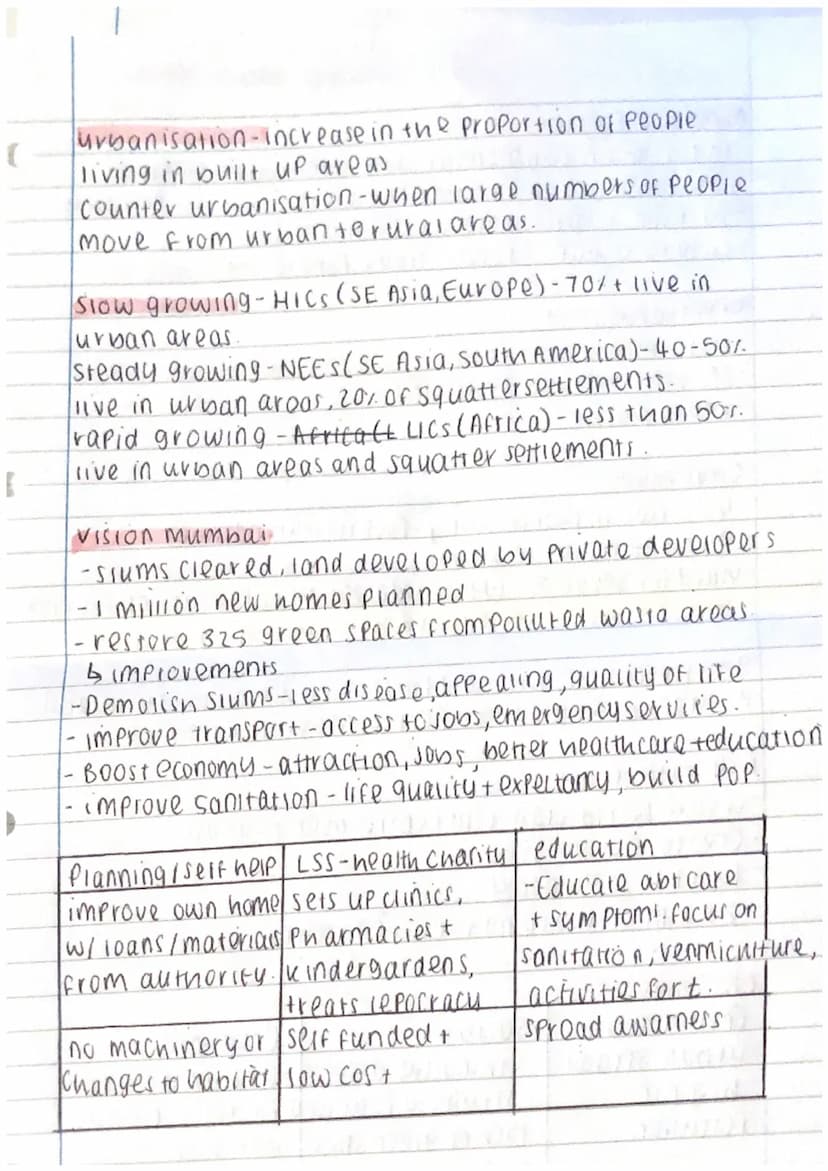 urbanisation - increase in the proportion of people
living in built up areas
counter urbanisation - when large numbers of people
move from urban to rural areas.
Slow growing - HICs (SE Asia, Europe) - 70%+ live in
urban areas.
Steady growing - NEEs (SE Asia, South America) - 40-50%
live in urban areas, 20% of squatter settlements.
rapid growing - Africa LICs (Africa) - less than 50%
live in urban areas and squatter settlements.
Vision Mumbai
- slums cleared, land developed by private developers
- 1 million new homes planned
- restore 325 green spaces from polluted waste areas
↳ improvements
- Demolish slums - less disease, appealing, quality of life
- improve transport - access to jobs, emergency services.
- Boost economy - attraction, jobs, better healthcare + education
- improve sanitation - life quality + expectancy, build pop.
Planning / self help | LSS - health charity | education
improve own home | sets up clinics, | - Educate abt care
w/ loans / materials | Pharmacies + | + symptoms. focus on
from authority. | kindergardens, | sanitation, vermiculture,
treats lepocracy | activities for t.
no machinery or | self funded + | spread awarness
changes to habitat | low cost